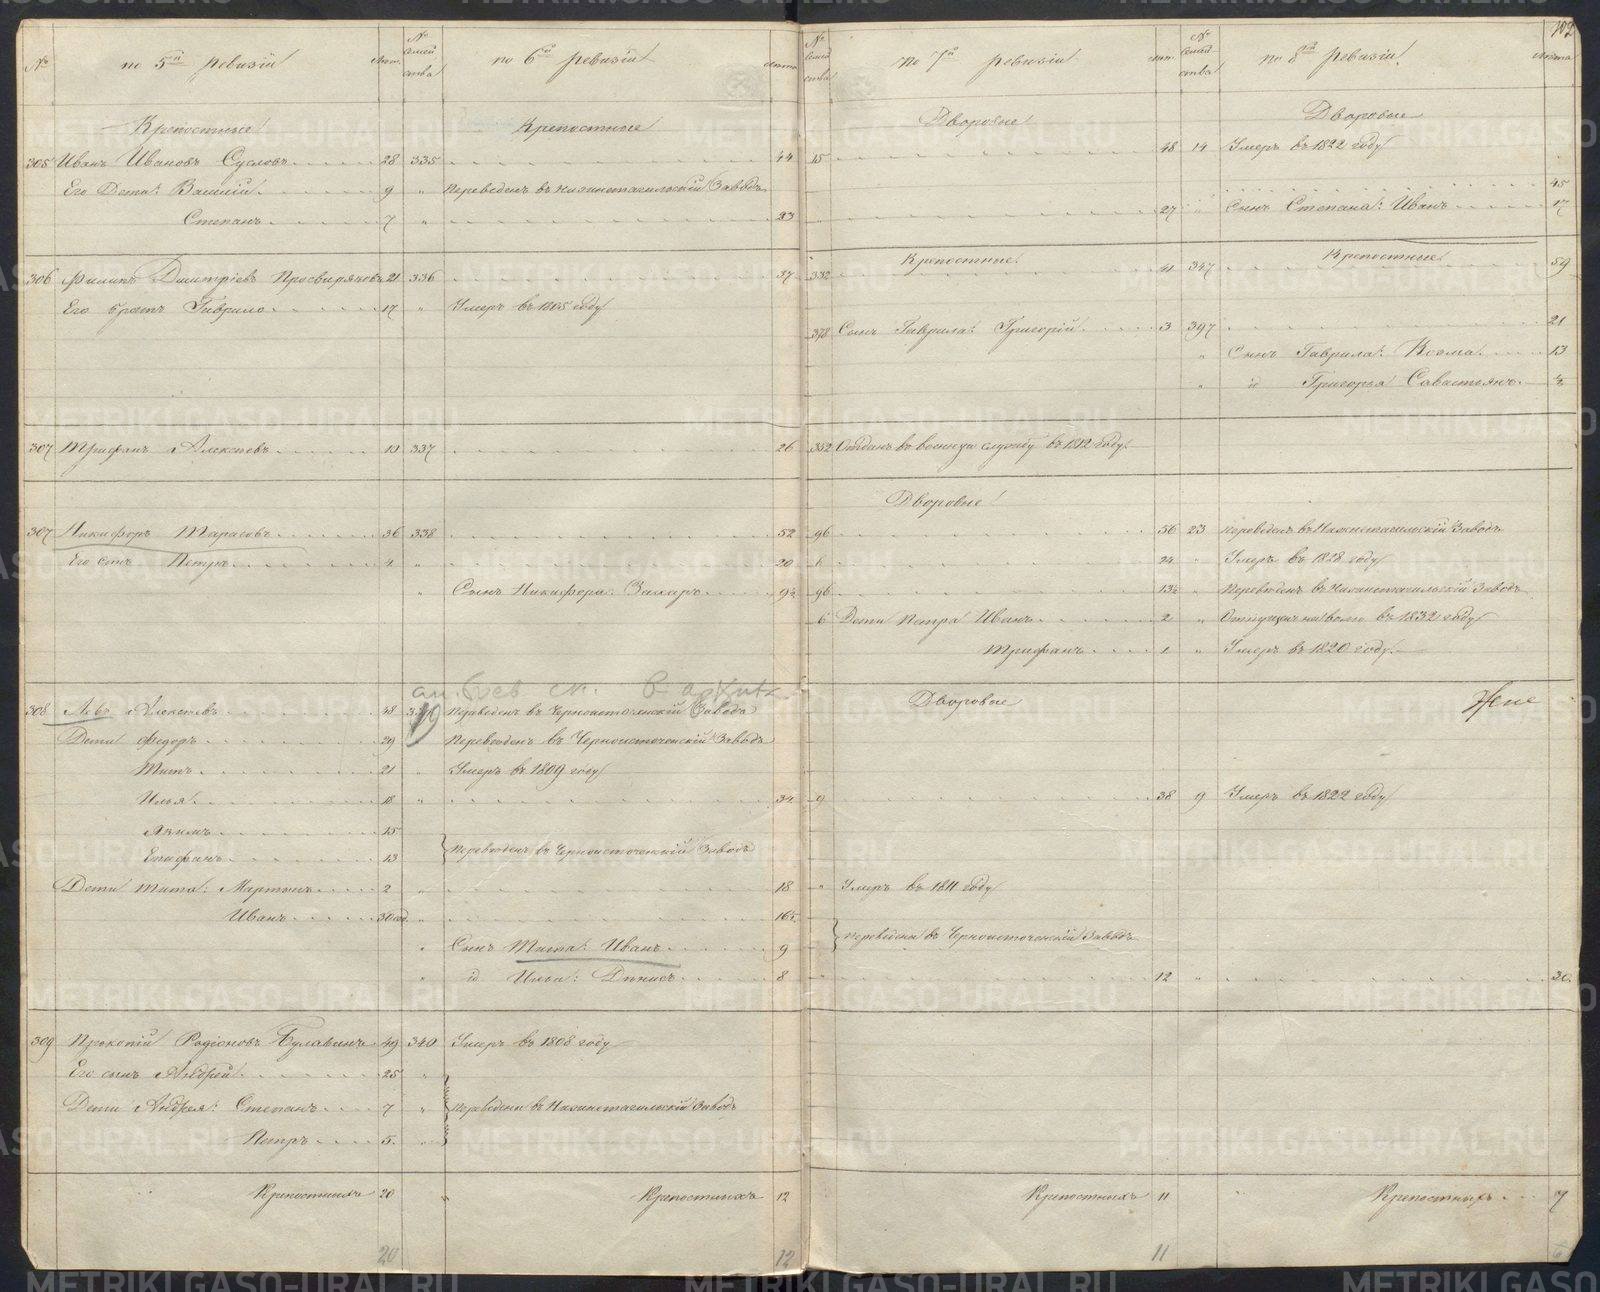 102
№ по 5й ревизіи лѣт. № семейства по 6й ревизіи лѣта
№ семейства по 7й ревизіи лѣт. № семейства по 8й ревизіи лѣта
Крепостные Крепостные Дворовые Дворовые
305 Иванъ Ивановъ Сусловъ 28 335 44 15 48 14 Умеръ въ 1822 году
Его Дети: Василій 9 „ Переведенъ въ Нижнетагильскій Заводъ 45
Степанъ 7 „ 23 27 „ Сынъ Степана: Иванъ 17
Крепостные Крепостные
306 Филипъ Дмитріевъ Просвиряковъ 21 336 37 332 41 347 59
Его братъ Гаврило 17 „ Умеръ въ 1805 году
378 Сынъ Гаврила: Григорій 3 397 21
„ Сынъ Гаврила: Козма 13
„ id Григорья Савастьянъ ½
307 Трифанъ Алексѣевъ 19 337 26 352 Отданъ въ военную службу въ 1812 году.
Дворовые
307 Никифоръ Тарасовъ 36 338 52 96 56 23 Переведенъ въ Нижнетагильскій Заводъ
Его сынъ Петръ 4 20 6 24 „ Умеръ въ 1828 году
„ Сынъ Никифора: Захаръ 9½ 96 13½ „ Переведенъ въ Нижнетагильскій Заводъ
6 Дети Петра Иванъ 2 „ Отпущенъ на волю въ 1832 году
Трифанъ 1 „ Умеръ въ 1820 году.
Дворовые
308 Левъ Алексѣевъ 48 Переведенъ въ Черноисточенскій Заводъ
Дети Федоръ 29 Переведенъ въ Черноисточенскій Заводъ
Титъ 21 „ Умеръ въ 1809 году
Илья 18 „ 34 9 38 9 Умеръ въ 1822 году
Акимъ 15
Епифанъ 13 Переведенъ въ Черноисточенскій Заводъ
Дети Тита: Мартынъ 2 „ 18 „ Умеръ въ 1811 году
Иванъ „ 16½
Переведены въ Черноисточенскій Заводъ
„ Сынъ Тита: Иванъ 9
„ id Ильи: Денисъ 8 „ 12 „ 30
309 Прокопій Родіоновъ Булавинъ 49 340 Умеръ въ 1808 году
Его сынъ Андрей 25 „
Дети Андрея: Степанъ 7 „ Переведены въ Нижнетагильскій Заводъ
Петръ 5 „
Крепостныхъ 20 „ Крепостныхъ 12 Крепостныхъ 11 Крепостныхъ 7
20 12 11 6
METRIKI.GASO-URAL.RU